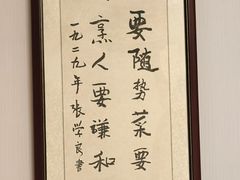 要随势菜要
烹人要谦和
一九二九年张学良书